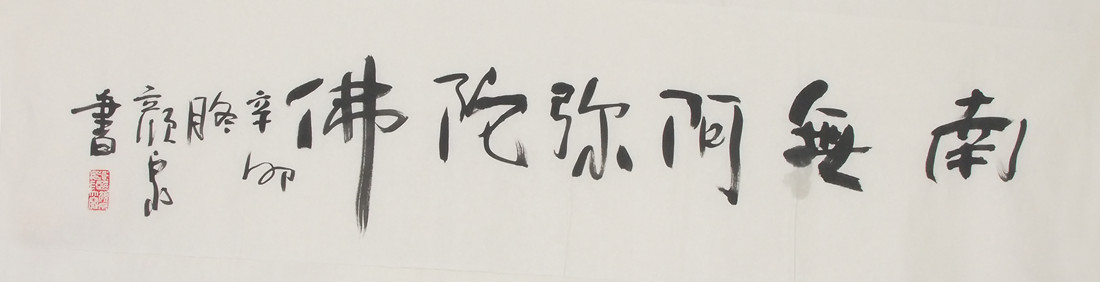 南無阿弥陀佛
辛卯
顏泉
書